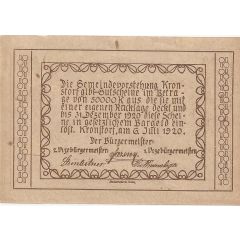 Die Gemeindevorstehung Kron-
storf gibt Gutscheine im Betra-
ge von 50000 K aus die sie mit
einer eigenen Rücklage deckt und
bis 31. Dezember 1920 diese Schei-
ne in gesetzlichem Bargeld ein-
löst. Kronstorf, am 6. Juli 1920.
Der Bürgermeister
z. Vizebürgermeister z. Vizebürgermeister